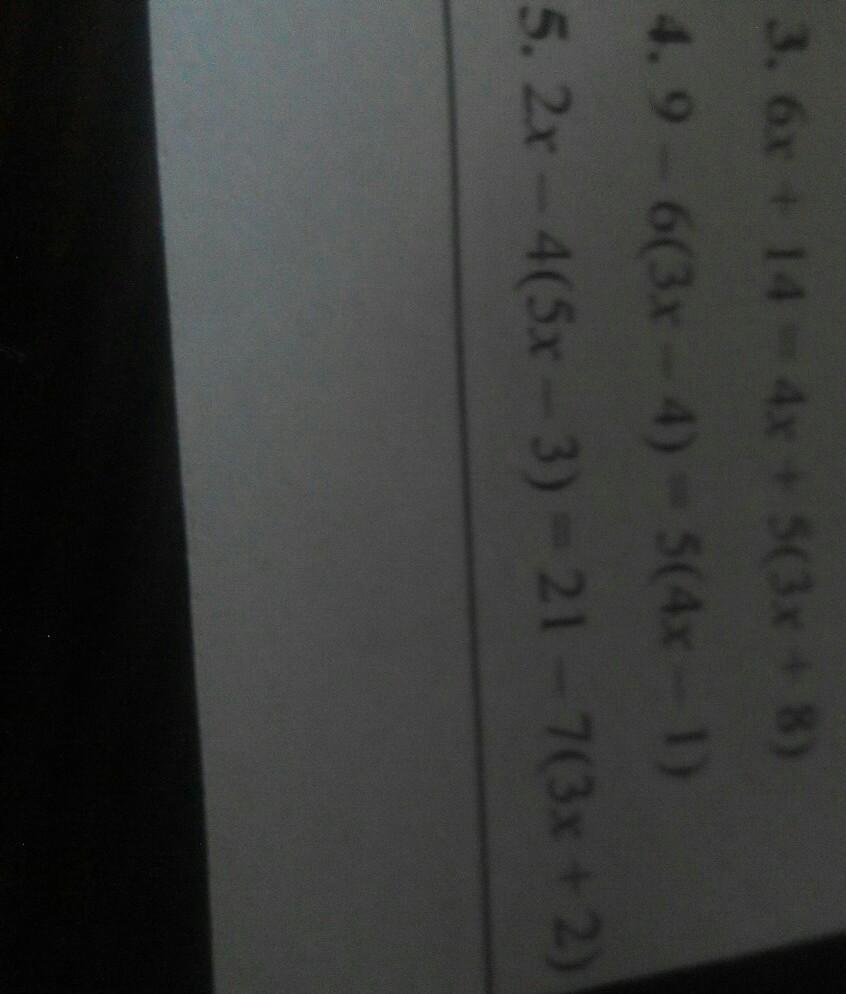 3. 6x + 14 = 4x + 5(3x + 8)
4. 9 − 6(3x − 4) = 5(4x − 1)
5. 2x − 4(5x − 3) = 21 − 7(3x + 2)